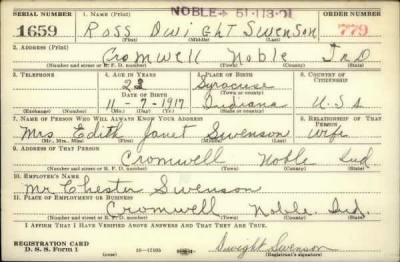 NOBLE
SERIAL NUMBER 1. NAME (Print) ORDER NUMBER
1659 Ross Dwight Swenson 779
(First) (Middle) (Last)
2. ADDRESS (Print)
Cromwell Noble Ind
(Number and street or R. F. D. number) (Town) (County) (State)
3. TELEPHONE 4. AGE IN YEARS 5. PLACE OF BIRTH 6. COUNTRY OF CITIZENSHIP
22 Syracuse
DATE OF BIRTH (Town or county)
11-7-1917 Indiana U.S.A
(Exchange) (Number) (Mo.) (Day) (Yr.) (State or country)
7. NAME OF PERSON WHO WILL ALWAYS KNOW YOUR ADDRESS 8. RELATIONSHIP OF THAT PERSON
Mrs Edith Janet Swenson Wife
(Mr., Mrs., Miss) (First) (Middle) (Last)
9. ADDRESS OF THAT PERSON
Cromwell Noble Ind
(Number and street or R. F. D. number) (Town) (County) (State)
10. EMPLOYER'S NAME
Mr. Chester Swenson
11. PLACE OF EMPLOYMENT OR BUSINESS
Cromwell Noble. Ind.
(Number and street or R. F. D. number) (Town) (County) (State)
I AFFIRM THAT I HAVE VERIFIED ABOVE ANSWERS AND THAT THEY ARE TRUE.
REGISTRATION CARD
D. S. S. Form 1 (over) 16-17105 Dwight Swenson
(Registrant's signature)